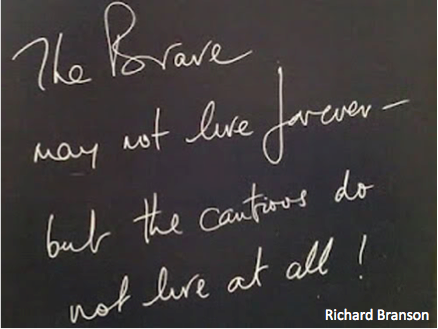 The Brave
may not live forever –
but the cautious do
not live at all !
Richard Branson